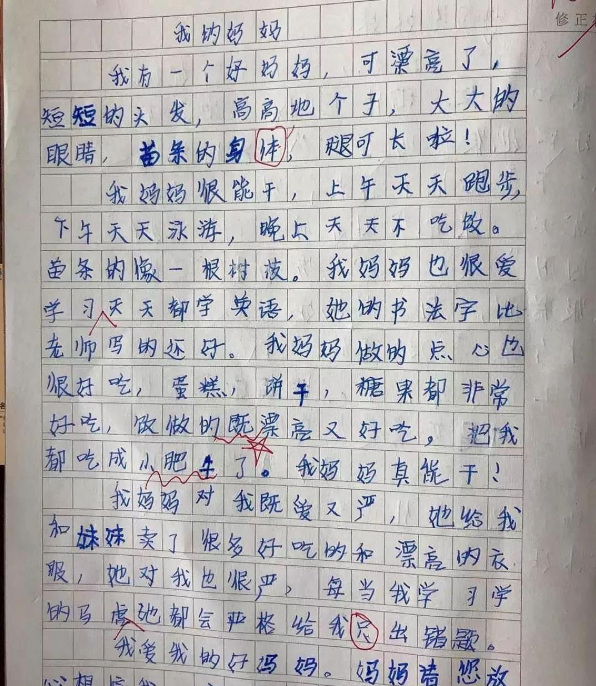 修正
我的妈妈
我有一个好妈妈，可漂亮了，
短短的头发，高高地个子，大大的
眼睛，苗条的身体，腿可长啦！
我妈妈很能干，上午天天跑步，
下午天天泳游，晚上天天不吃饭。
苗条的像一根树枝。我妈妈也很爱
学习天天都学英语，她的书法字比
老师写的还好。我妈妈做的点心也
很好吃，蛋糕，饼干，糖果都非常
好吃，做的既漂亮又好吃。把我
都吃成小肥牛了。我妈妈真能干！
我妈妈对我既爱又严，她给我
和妹妹卖了很多好吃的和漂亮的衣
服，她对我也很严，每当我学习学
的马虎她都会严格给我只出错题。
我爱我的好妈妈。妈妈请您放
心